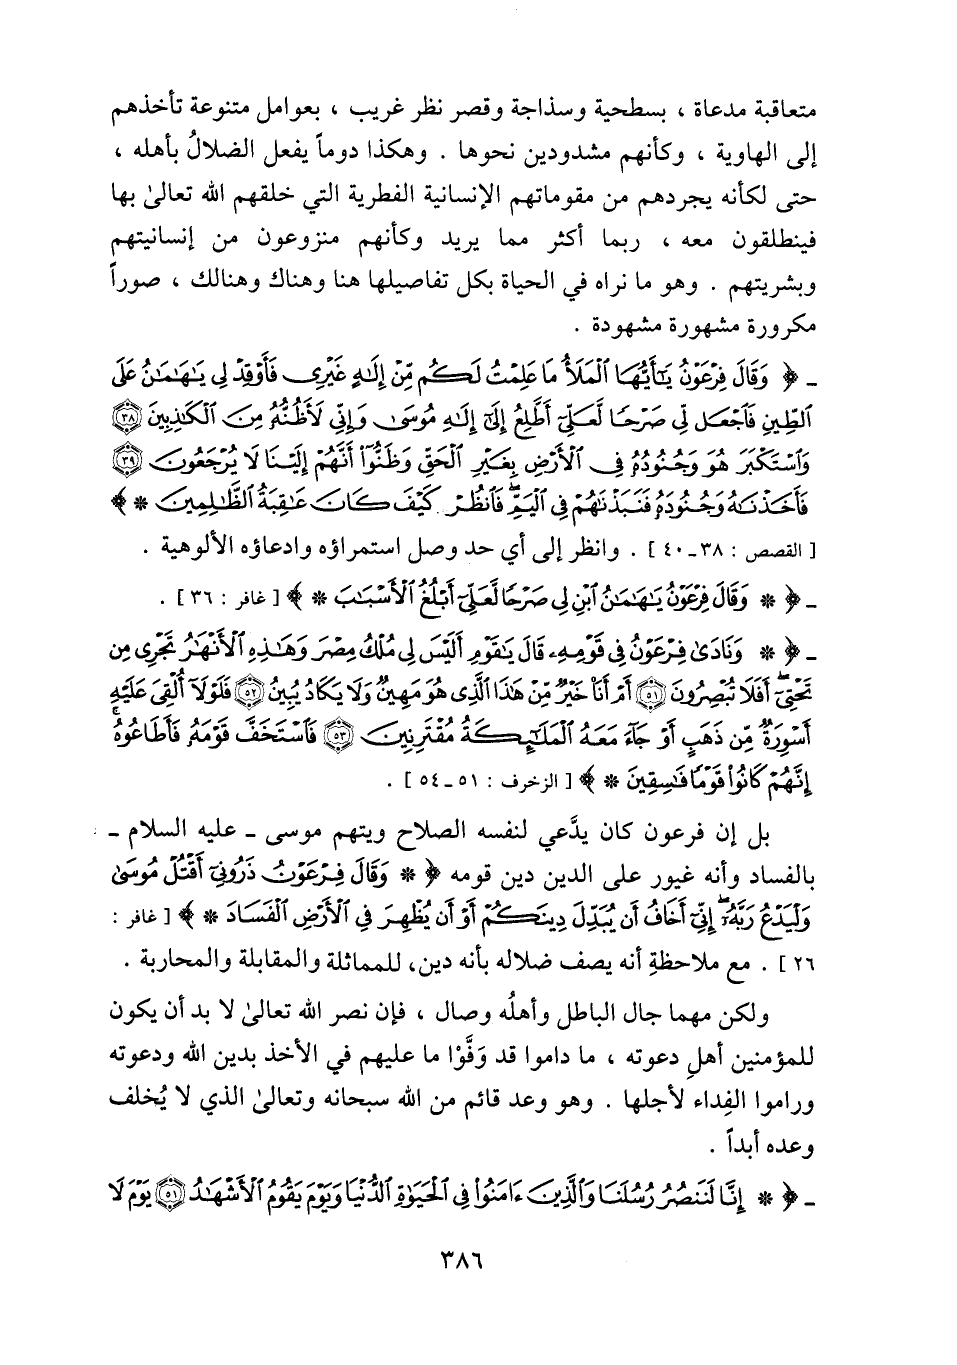 متعاقبة مدعاة ، بسطحية وسذاجة وقصر نظر غريب ، بعوامل متنوعة تأخذهم
إلى الهاوية ، وكأنهم مشدودين نحوها . وهكذا دوماً يفعل الضلالُ بأهله ،
حتى لكأنه يجردهم من مقوماتهم الإنسانية الفطرية التي خلقهم الله تعالىٰ بها
فينطلقون معه ، ربما أكثر مما يريد وكأنهم منزوعون من إنسانيتهم
وبشريتهم . وهو ما نراه في الحياة بكل تفاصيلها هنا وهناك وهنالك ، صوراً
مكرورة مشهورة مشهودة .
ـ ﴿ وَقَالَ فِرْعَوْنُ يَـٰٓأَيُّهَا ٱلْمَلَأُ مَا عَلِمْتُ لَكُم مِّنْ إِلَـٰهٍ غَيْرِى فَأَوْقِدْ لِى يَـٰهَـٰمَـٰنُ عَلَى
ٱلطِّينِ فَٱجْعَل لِّى صَرْحًا لَّعَلِّىٓ أَطَّلِعُ إِلَىٰٓ إِلَـٰهِ مُوسَىٰ وَإِنِّى لَأَظُنُّهُۥ مِنَ ٱلْكَـٰذِبِينَ ۝٣٨
وَٱسْتَكْبَرَ هُوَ وَجُنُودُهُۥ فِى ٱلْأَرْضِ بِغَيْرِ ٱلْحَقِّ وَظَنُّوٓا۟ أَنَّهُمْ إِلَيْنَا لَا يُرْجَعُونَ ۝٣٩
فَأَخَذْنَـٰهُ وَجُنُودَهُۥ فَنَبَذْنَـٰهُمْ فِى ٱلْيَمِّ ۖ فَٱنظُرْ كَيْفَ كَانَ عَـٰقِبَةُ ٱلظَّـٰلِمِينَ * ﴾
[ القصص : ٣٨ـ٤٠ ] . وانظر إلى أي حد وصل استمراؤه وادعاؤه الألوهية .
ـ ﴿ * وَقَالَ فِرْعَوْنُ يَـٰهَـٰمَـٰنُ ٱبْنِ لِى صَرْحًا لَّعَلِّىٓ أَبْلُغُ ٱلْأَسْبَـٰبَ * ﴾ [ غافر : ٣٦ ] .
ـ ﴿ * وَنَادَىٰ فِرْعَوْنُ فِى قَوْمِهِۦ قَالَ يَـٰقَوْمِ أَلَيْسَ لِى مُلْكُ مِصْرَ وَهَـٰذِهِ ٱلْأَنْهَـٰرُ تَجْرِى مِن
تَحْتِىٓ ۖ أَفَلَا تُبْصِرُونَ ۝٥١ أَمْ أَنَا۠ خَيْرٌ مِّنْ هَـٰذَا ٱلَّذِى هُوَ مَهِينٌ وَلَا يَكَادُ يُبِينُ ۝٥٢ فَلَوْلَآ أُلْقِىَ عَلَيْهِ
أَسْوِرَةٌ مِّن ذَهَبٍ أَوْ جَآءَ مَعَهُ ٱلْمَلَـٰٓئِكَةُ مُقْتَرِنِينَ ۝٥٣ فَٱسْتَخَفَّ قَوْمَهُۥ فَأَطَاعُوهُ ۚ
إِنَّهُمْ كَانُوا۟ قَوْمًا فَـٰسِقِينَ * ﴾ [ الزخرف : ٥١ـ٥٤ ] .
بل إن فرعون كان يدَّعي لنفسه الصلاح ويتهم موسى ـ عليه السلام ـ
بالفساد وأنه غيور على الدين دين قومه ﴿ * وَقَالَ فِرْعَوْنُ ذَرُونِىٓ أَقْتُلْ مُوسَىٰ
وَلْيَدْعُ رَبَّهُۥٓ ۖ إِنِّىٓ أَخَافُ أَن يُبَدِّلَ دِينَكُمْ أَوْ أَن يُظْهِرَ فِى ٱلْأَرْضِ ٱلْفَسَادَ * ﴾ [ غافر :
٢٦ ] . مع ملاحظةِ أنه يصف ضلاله بأنه دين، للمماثلة والمقابلة والمحاربة .
ولكن مهما جال الباطل وأهلُه وصال ، فإن نصر الله تعالىٰ لا بد أن يكون
للمؤمنين أهلِ دعوته ، ما داموا قد وَفَّوْا ما عليهم في الأخذ بدين الله ودعوته
وراموا الفِداء لأجلها . وهو وعد قائم من الله سبحانه وتعالىٰ الذي لا يُخلف
وعده أبداً .
ـ ﴿ * إِنَّا لَنَنصُرُ رُسُلَنَا وَٱلَّذِينَ ءَامَنُوا۟ فِى ٱلْحَيَوٰةِ ٱلدُّنْيَا وَيَوْمَ يَقُومُ ٱلْأَشْهَـٰدُ ۝٥١ يَوْمَ لَا
٣٨٦